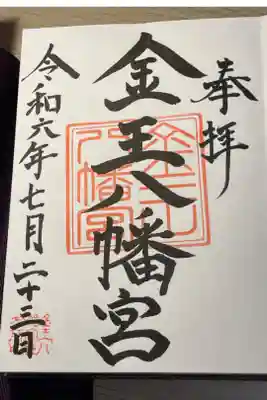 奉拝
金王八幡宮
令和六年七月二十三日